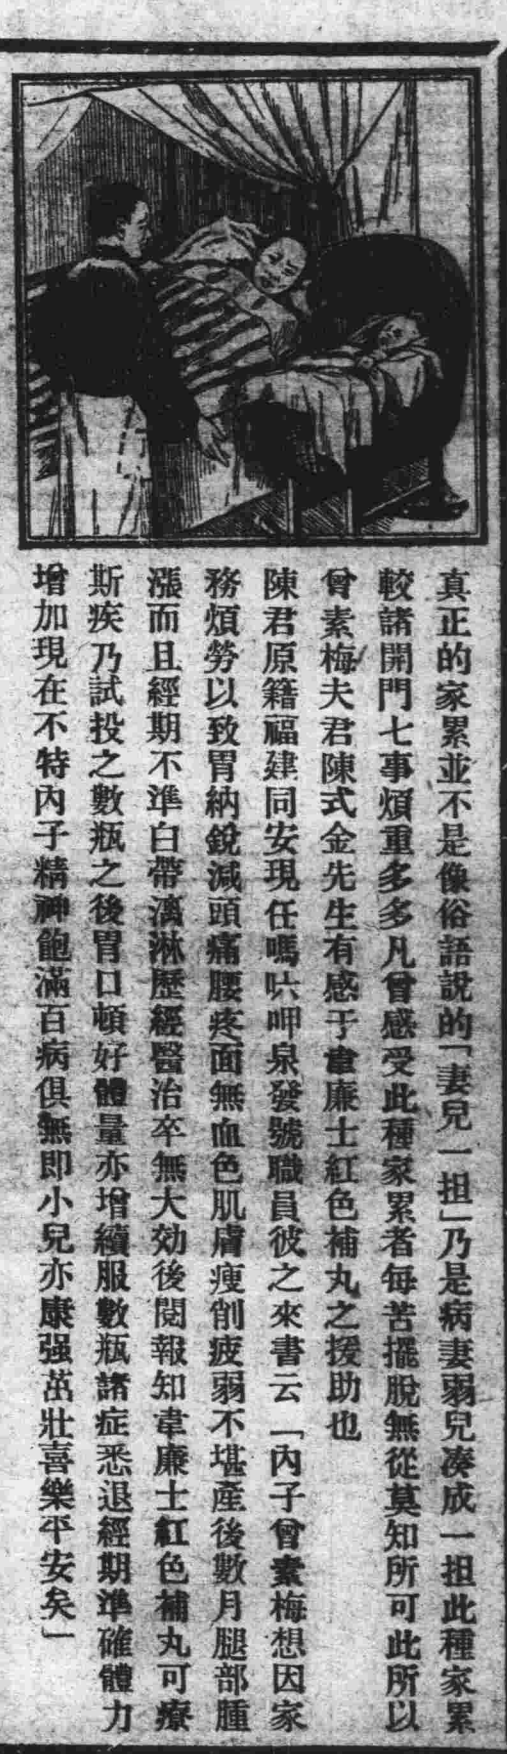 真正的家累並不是像俗語說的「妻兒一担」乃是病妻弱兒湊成一担此種家累
較諸開門七事煩重多多凡曾感受此種家累者每苦擺脫無從莫知所可此所以
曾素梅夫君陳式金先生有感于韋廉士紅色補丸之援助也
陳君原籍福建同安現任嗎吙呷泉發號職員彼之來書云「內子曾素梅想因家
務煩勞以致胃納銳減頭痛腰疼面無血色肌膚瘦削疲弱不堪產後數月腿部腫
漲而且經期不準白帶漓淋歷經醫治卒無大効後閱報知韋廉士紅色補丸可療
斯疾乃試投之數瓶之後胃口頓好體量亦增續服數瓶諸症悉退經期準確體力
增加現在不特內子精神飽滿百病俱無即小兒亦康强茁壯喜樂平安矣」